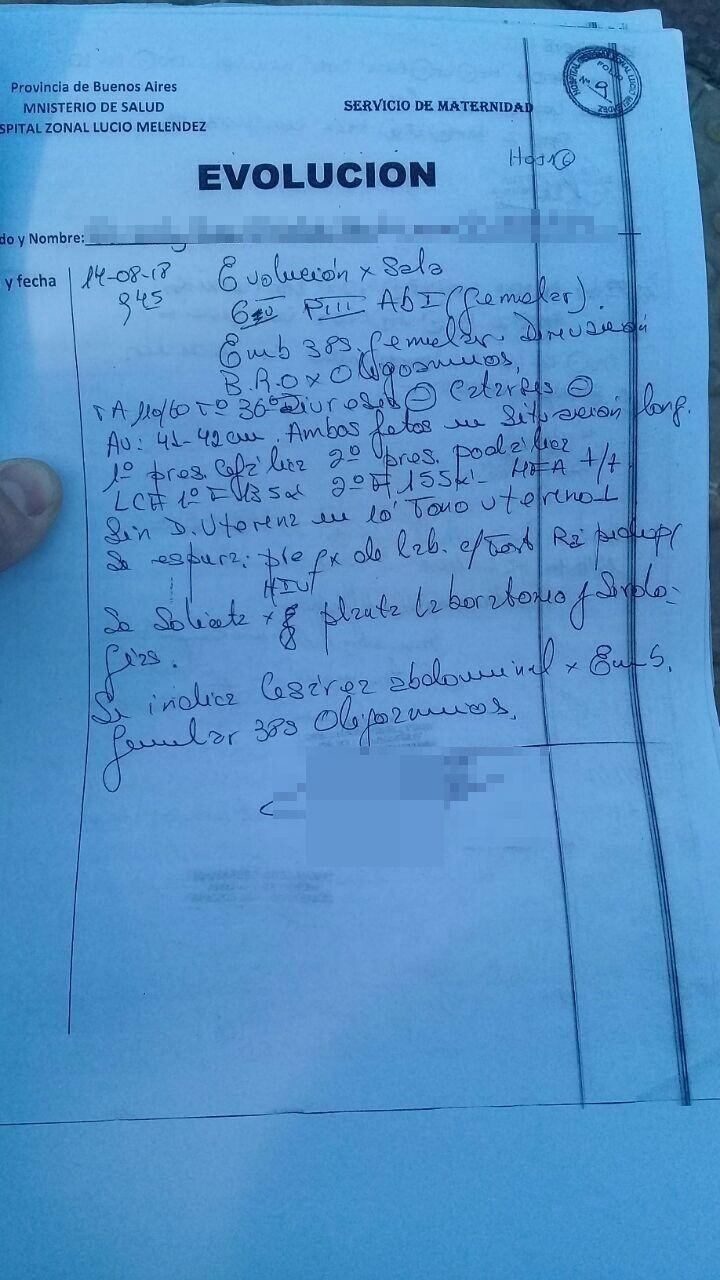 Provincia de Buenos Aires
MNISTERIO DE SALUD
SPITAL ZONAL LUCIO MELENDEZ
SERVICIO DE MATERNIDAD
HOSPITAL ZONAL LUCIO MELENDEZ
FOLIO
Nº 9
EVOLUCION
do y Nombre:
y fecha
14-08-18
945
Evolución x Sala
PIII AbI (gemelar).
Emb 38s. gemelar.
B.R.O x Oligoamnios,
TA 110/60 Tº 36º Diuresis (-) Catarsis (-)
AU: 41-42cm. Ambos fetos en situación long.
1º pres. cefálica 2º pres. podálica
LCF 1º F 135x' 2º F 155x' MFA +/+
Sin D. Uterina en 10' Tono uterino
Se espera de lab. c/
HIV
Se Solicita x planta laboratorio y Serolo-
gías.
Se indica Cesárea abdominal x Emb.
gemelar 38s Oligoamnios.